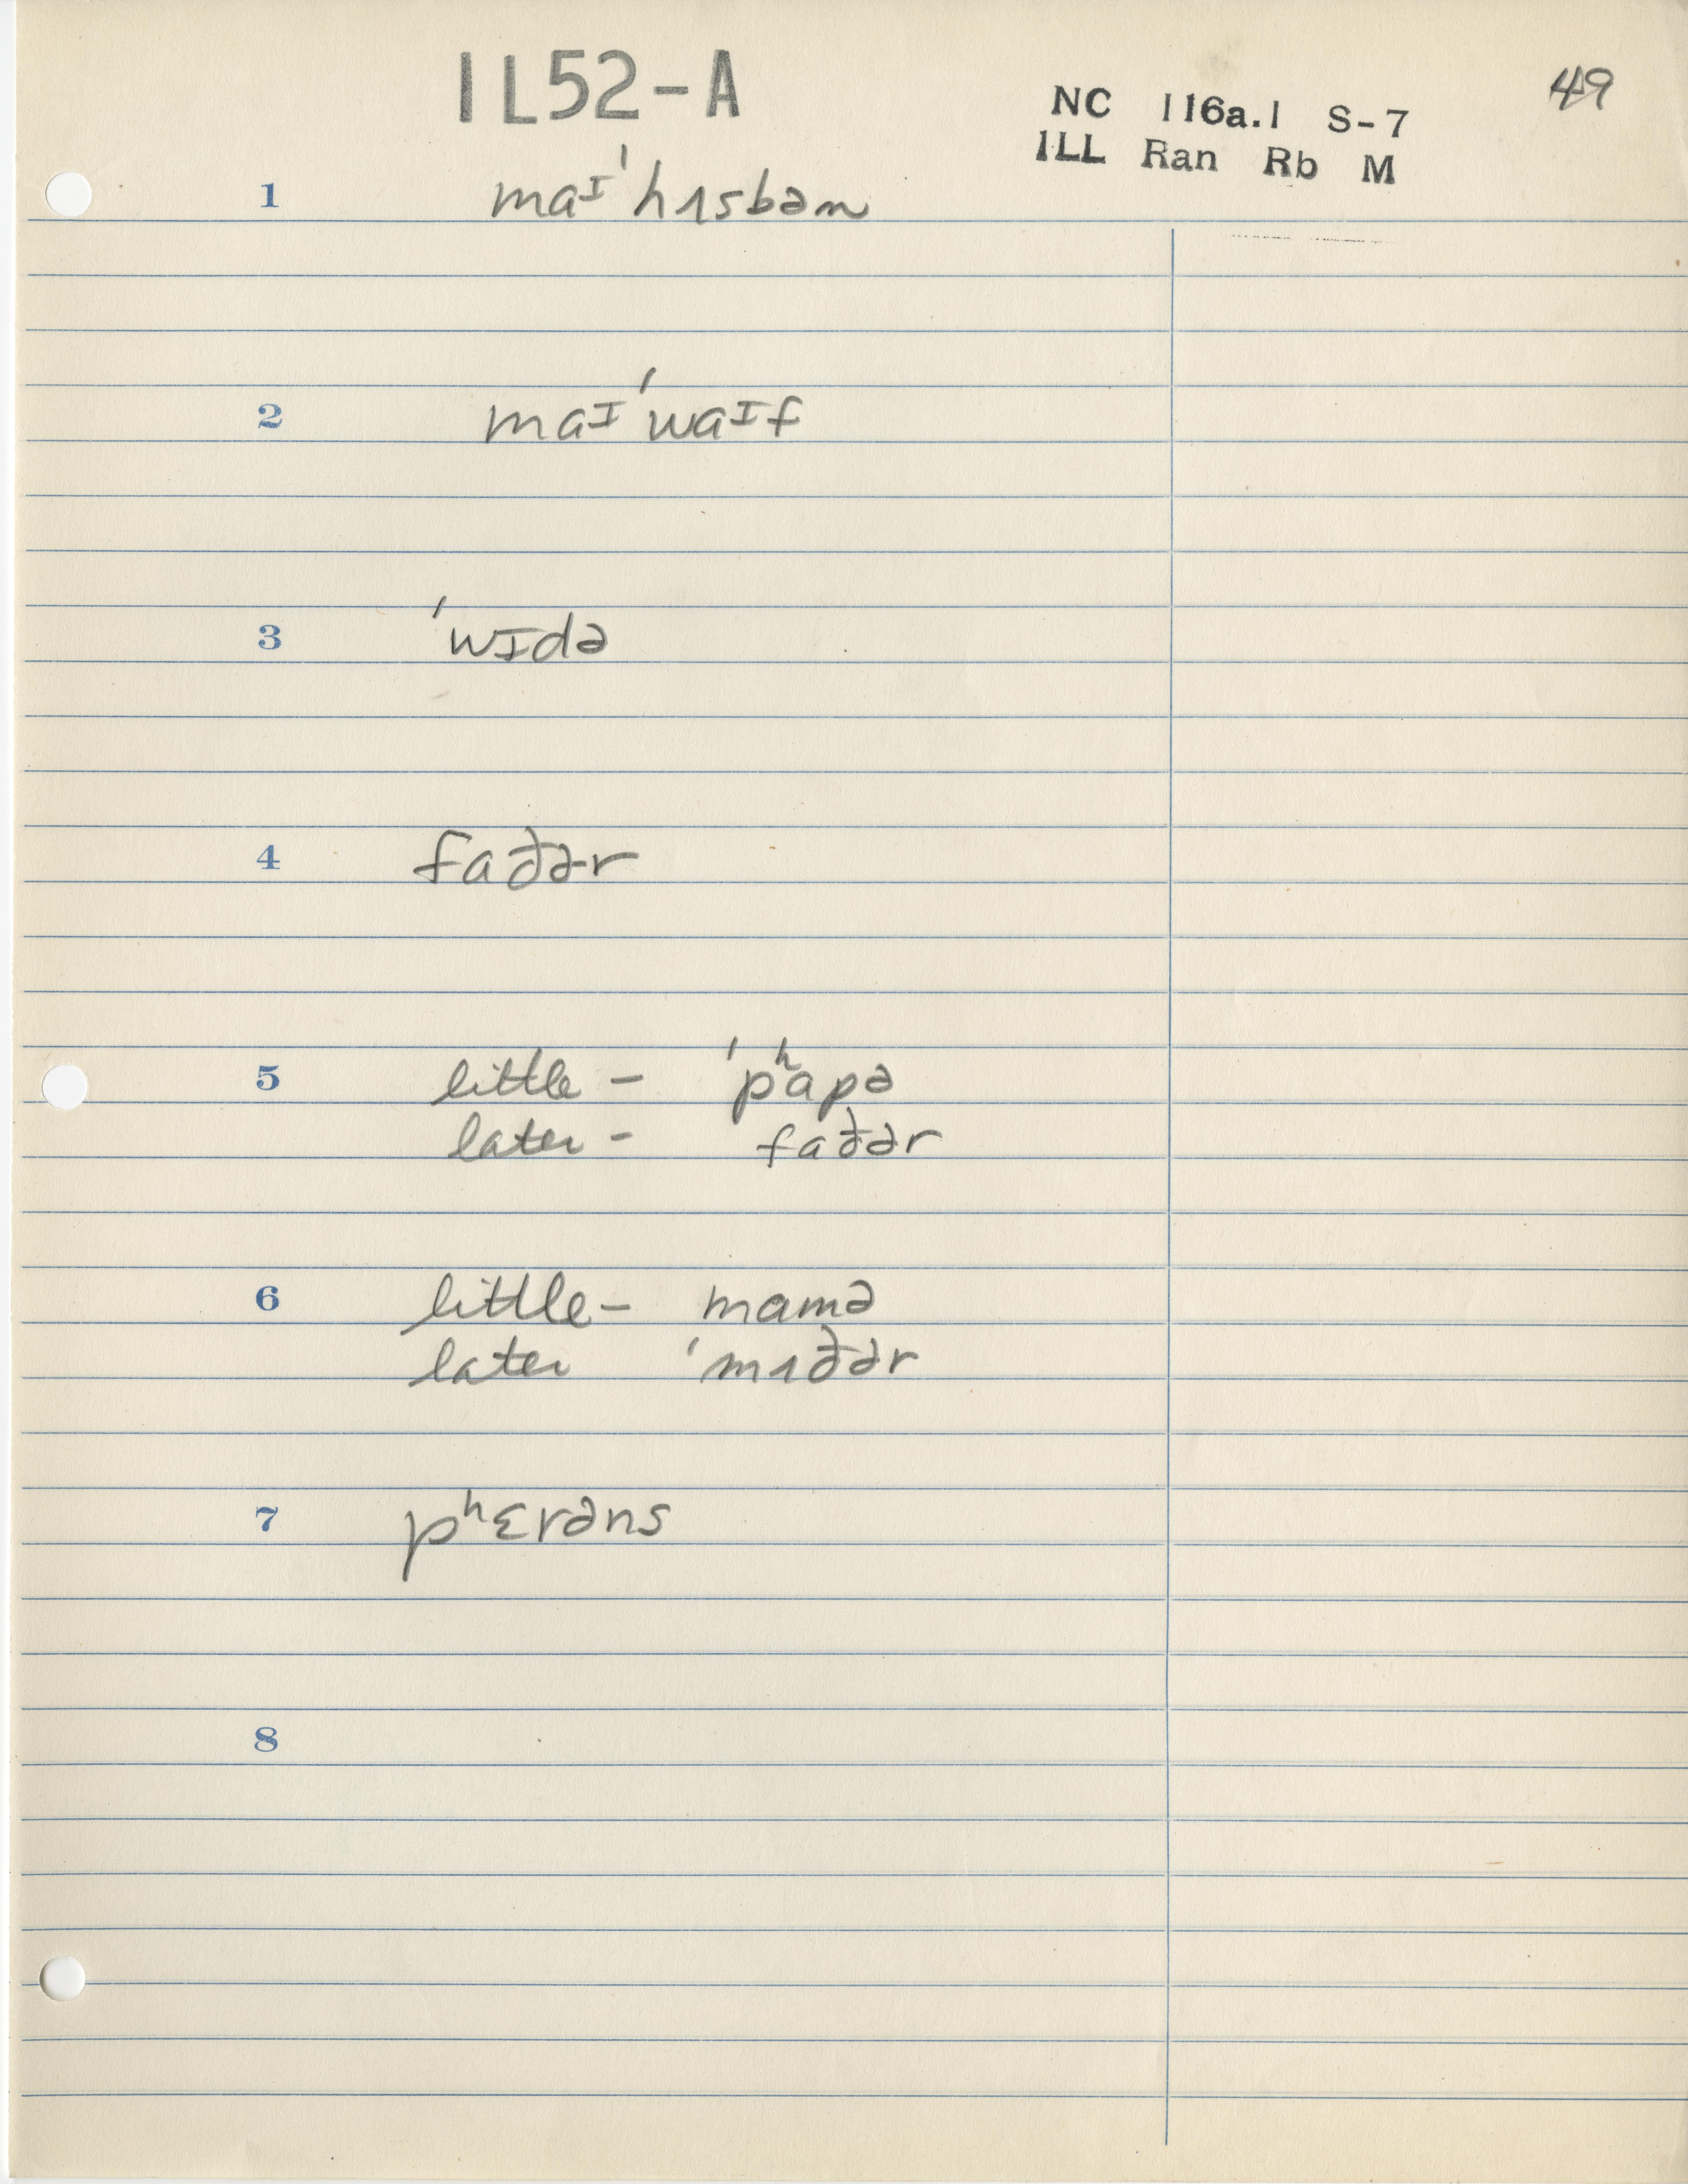 IL52-A
NC 116a.1 S-7
ILL Ran Rb M
49
1 maɪ ˈhɿsbəm
2 maɪ ˈwaɪf
3 ˈwɪdə
4 faðər
5 little – ˈpʰapə
later - faðər
6 little – mamə
later ˈmɿðər
7 pʰɛrəns
8